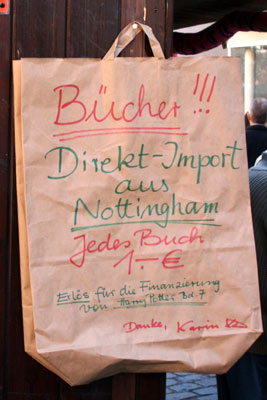 Bücher!!!
Direkt-Import
aus
Nottingham
Jedes Buch
1.-€
Erlös für die Finanzierung
von Harry Potter Bd. 7
Danke, Karin